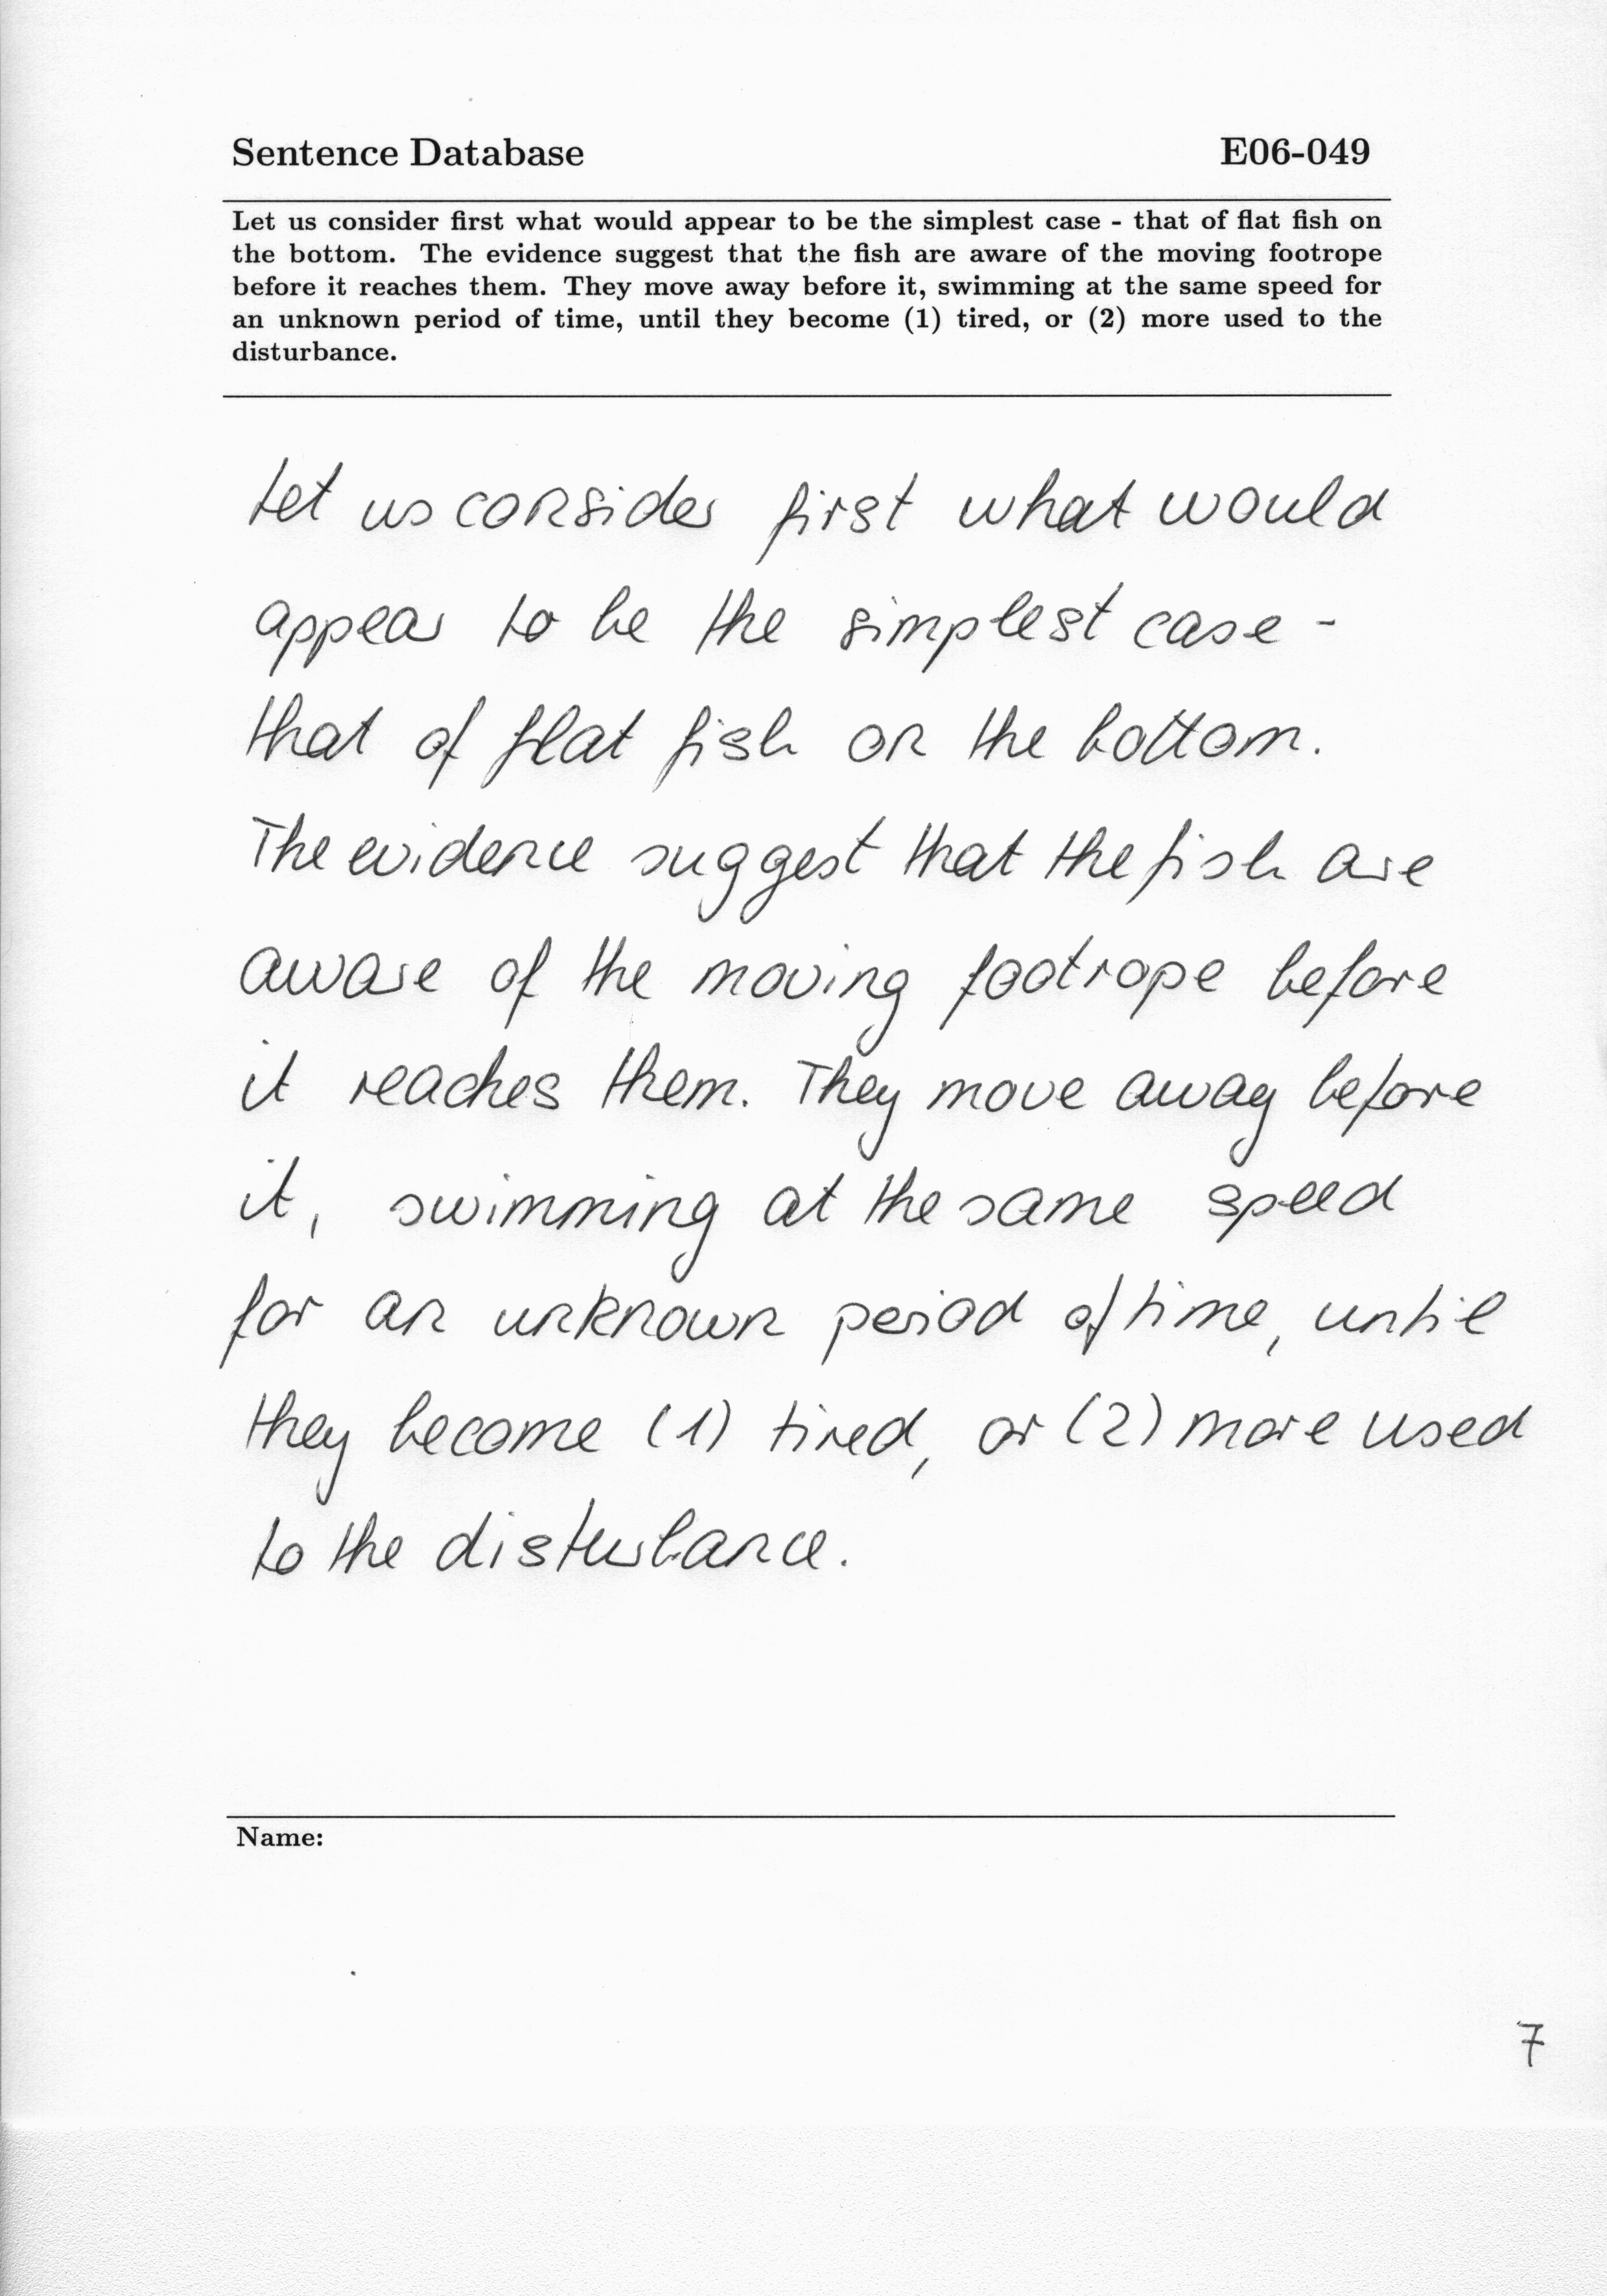 Sentence Database E06-049
Let us consider first what would appear to be the simplest case - that of flat fish on
the bottom. The evidence suggest that the fish are aware of the moving footrope
before it reaches them. They move away before it, swimming at the same speed for
an unknown period of time, until they become (1) tired, or (2) more used to the
disturbance.
Let us consider first what would
appear to be the simplest case -
that of flat fish on the bottom.
The evidence suggest that the fish are
aware of the moving footrope before
it reaches them. They move away before
it, swimming at the same speed
for an unknown period of time, until
they become (1) tired, or (2) more used
to the disturbance.
Name:
7